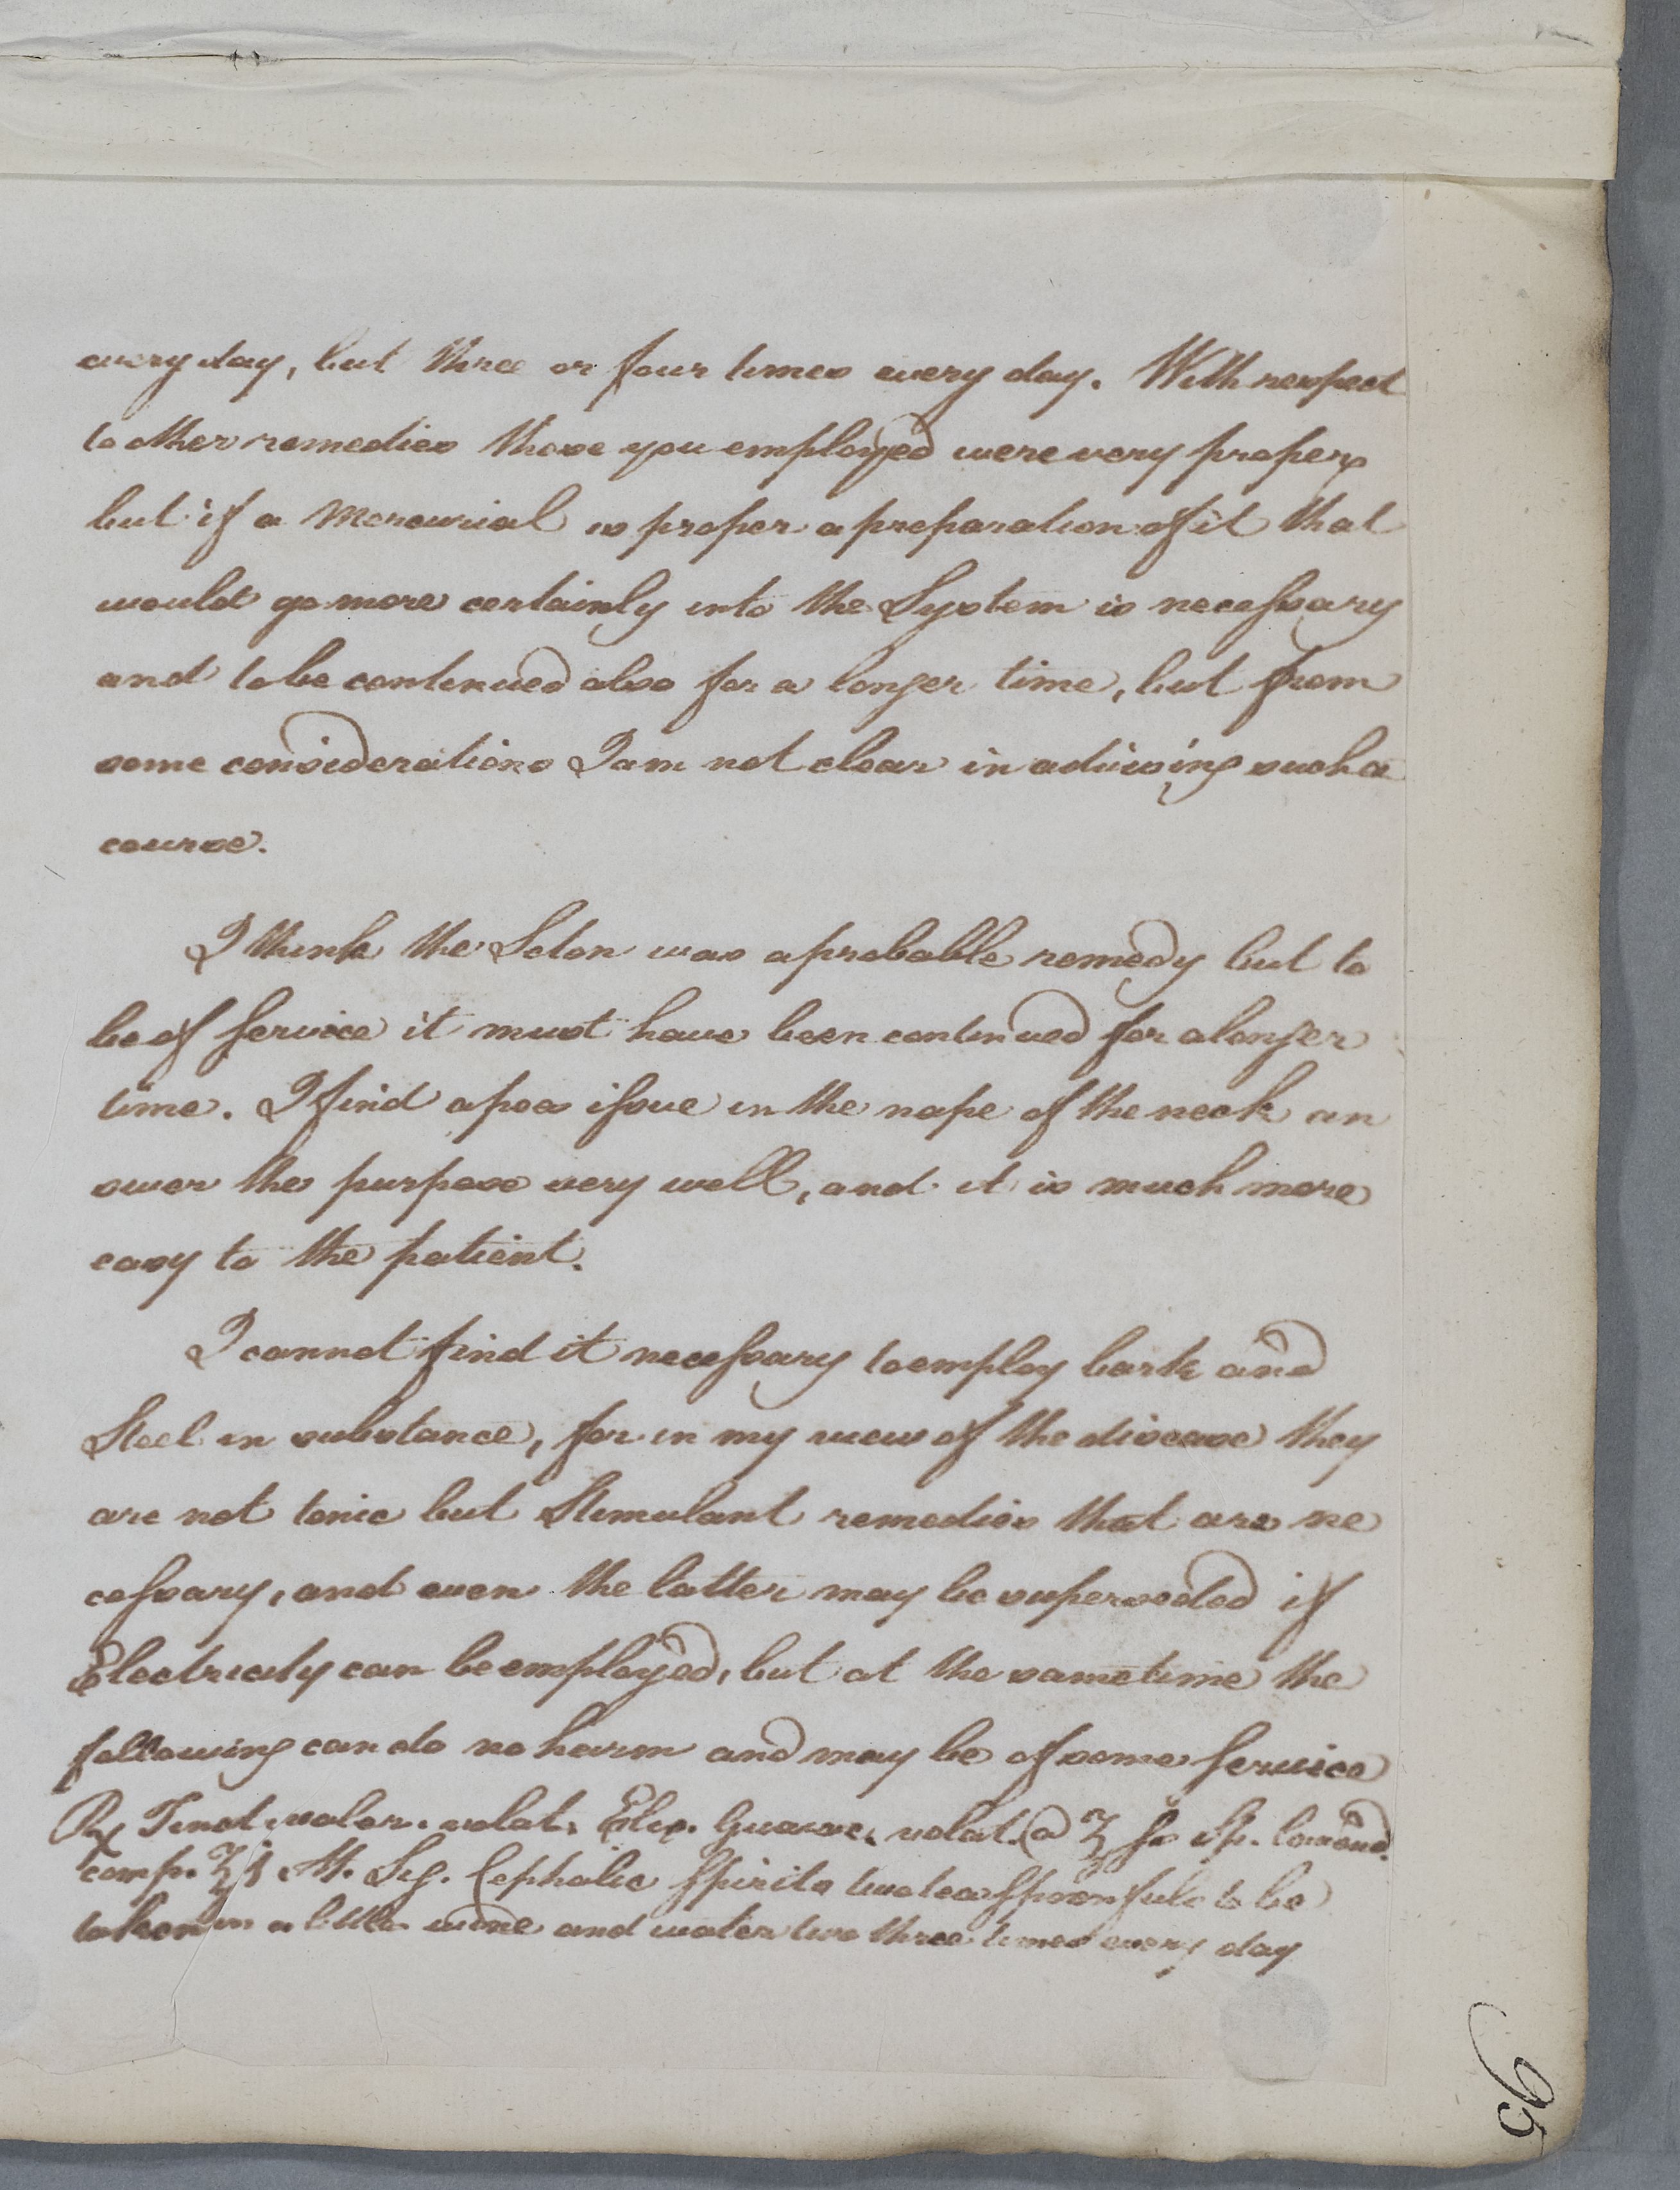 every day, but three or four times every day. With respect
to other remedies those you employed were very proper,
but if a Mercurial is proper a preparation of it that
would go more certainly into the System is necessary
and to be continued also for a longer time, but from
some considerations I am not clear in advising such a
course.
I think the Seton was a probable remedy but to
be of service it must have been continued for a longer
time. I find a pea issue in the nape of the neck an
swer the purpose very well, and it is much more
easy to the patient.
I cannot find it necessary to employ bark and
Steel in substance, for in my view of the disease they
are not tonic but Stimulant remedies that are ne
cessary, and even the latter may be superseded if
Electricity can be employed, but at the same time the
following can do no harm and may be of some service
℞ Tinct. valer. volat. Elix. Guaiac. volat. @ ℥ ss Sp. lavend.
comp. ℥ j M. Sig. Cephalic Spirits two tea spoonfuls to be
taken in a little wine and water two three times every day